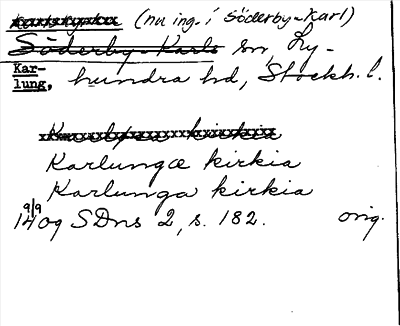 (nu ing. i Söderby-Karl)
Söderby-Karls sn, Ly-
Kar-
lung, hundra hd, Stockh. l.
Karlungæ kirkia
Karlunga kirkia
9/9
1409 SDns 2, s. 182. orig.